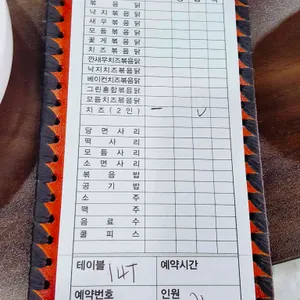 볶음닭
낙지볶음닭
새우볶음닭
모듬볶음닭
꽃게볶음닭
치즈볶음닭
깐새우치즈볶음닭
낙지치즈볶음닭
베이컨치즈볶음닭
그린홍합볶음닭
모듬치즈볶음닭
치즈(2인) - V
당면사리
떡사리
모듬사리
소면사리
볶음밥
공기밥
소주
맥주
음료수
쿨피스
테이블 14T 예약시간
예약번호 인원